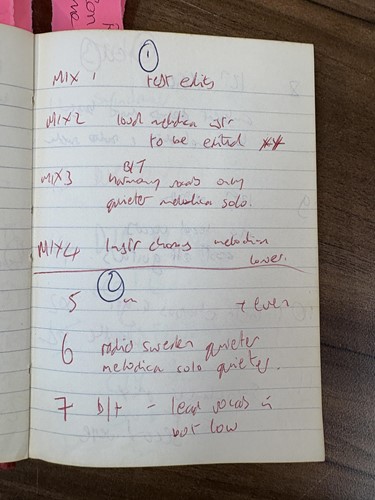 1
MIX 1 test edits
MIX2 loud melodica instr
to be edited **
B/T
MIX3 harmony vocals only
quieter melodica solo.
MIX4 Instr chorus melodica
lower.
2
5 + even
6 radio sweden quieter
melodica solo quieter.
7 B/T - lead vocals in
but low